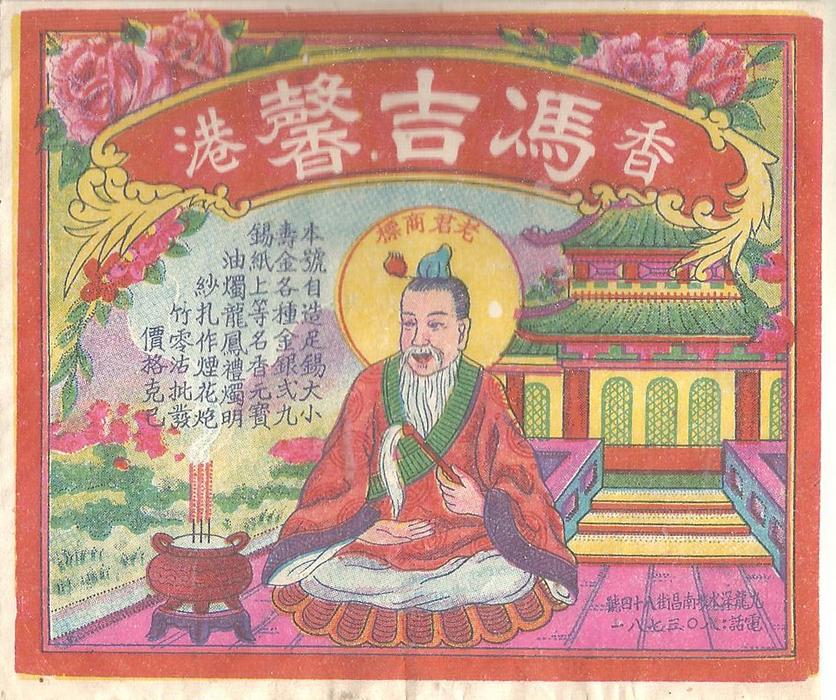 香馮吉馨港
老君商標
本號自造足錫大小
壽金各種金銀弍九
錫紙上等名香元寶
油燭龍鳳禮燭明
紗扎作煙花炮
竹零沽批發
價格克己
九龍深水埗南昌街八十四號
電話：八〇三七八一